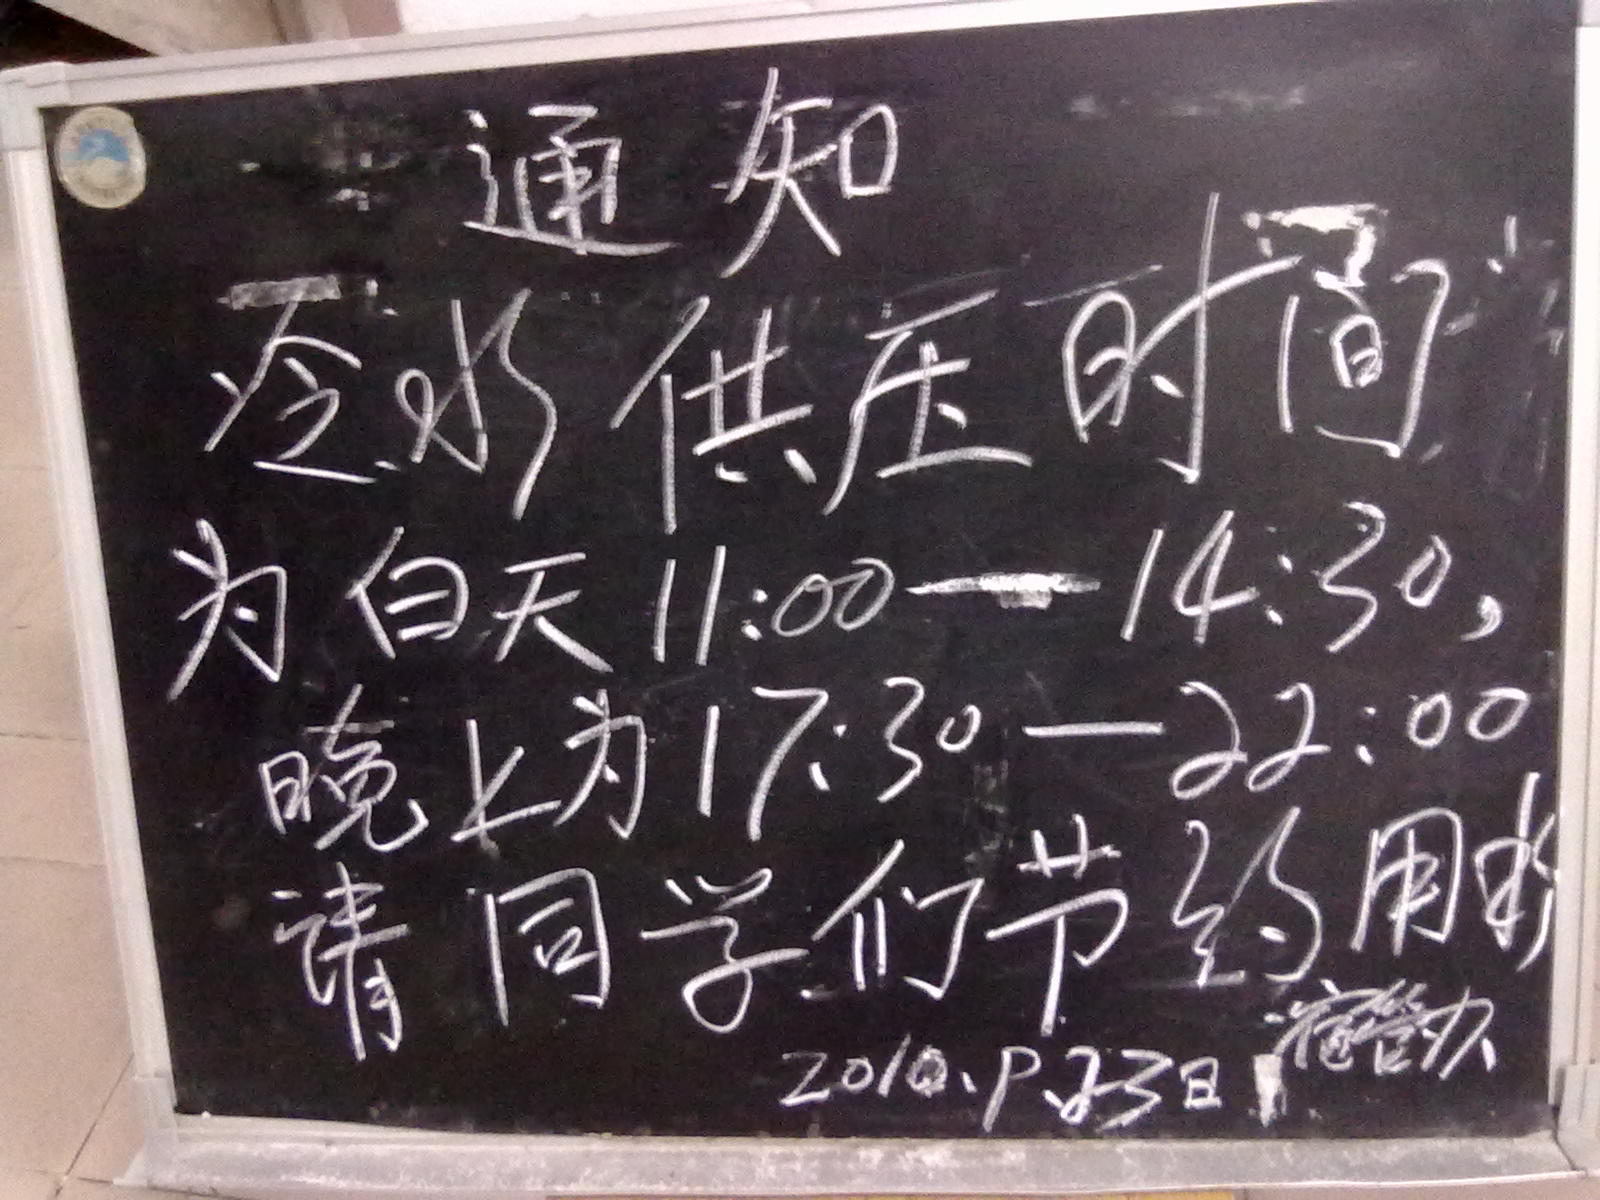 通知
冷水供压时间
为白天11:00—14:30,
晚上为17:30—22:00
请同学们节约用水
宿管办
2010.9.23日